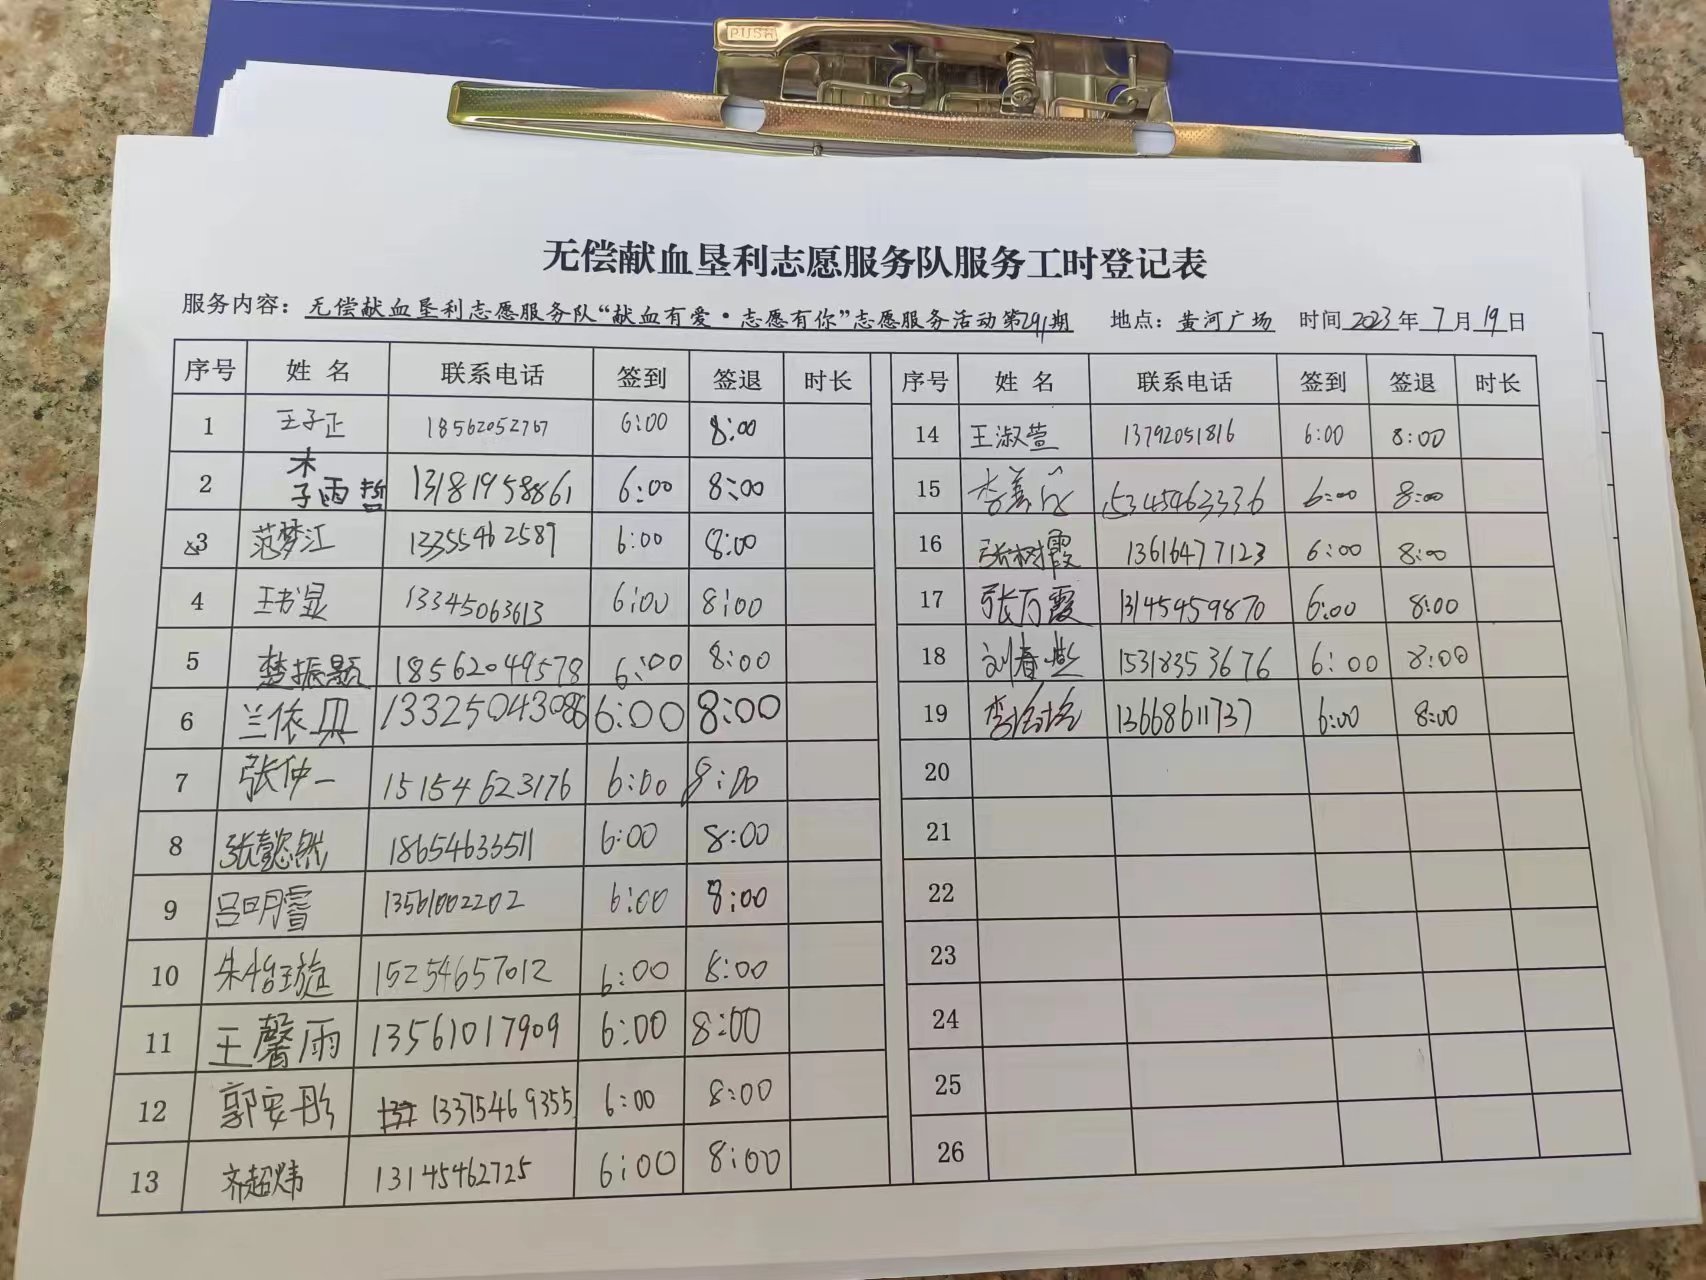 PUSH
无偿献血垦利志愿服务队服务工时登记表
服务内容：无偿献血垦利志愿服务队“献血有爱·志愿有你”志愿服务活动第291期 地点：黄河广场 时间2023年7月19日
序号 姓名 联系电话 签到 签退 时长 序号 姓名 联系电话 签到 签退 时长
1 王子正 18562052767 6:00 8:00 14 王淑萱 13792051816 6:00 8:00
2 李雨哲 13181958861 6:00 8:00 15 15345463336 6:00 8:00
3 范梦江 13355462589 6:00 8:00 16 张树霞 13616477123 6:00 8:00
4 王书显 13345063613 6:00 8:00 17 张万霞 13145459870 6:00 8:00
5 楚振题 18562049578 6:00 8:00 18 刘春燕 15318353676 6:00 8:00
6 兰依典 13325043086 6:00 8:00 19 13668611737 6:00 8:00
7 张仲一 15154623176 6:00 8:00 20
8 张懿然 18654633511 6:00 8:00 21
9 吕明睿 13561002202 6:00 8:00 22
10 朱怡璇 15254657012 6:00 8:00 23
11 王馨雨 13561017909 6:00 8:00 24
12 郭安彤 13375469355 6:00 8:00 25
13 齐超炜 13145462725 6:00 8:00 26